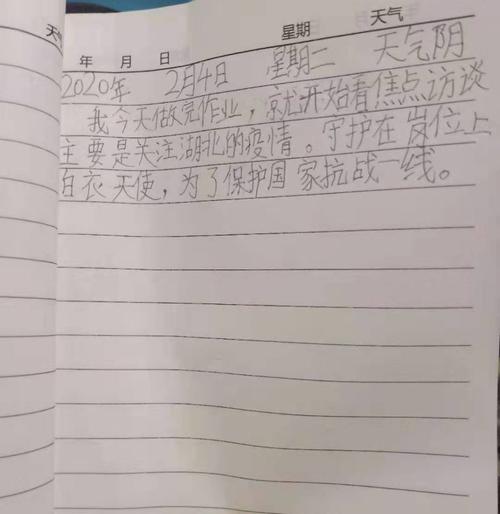 天气
年 月 日 星期 天气
2020年 2月4日 星期二 天气阴
我今天做完作业，就开始看焦点访谈
主要是关注湖北的疫情。守护在岗位上
白衣天使，为了保护国家抗战一线。